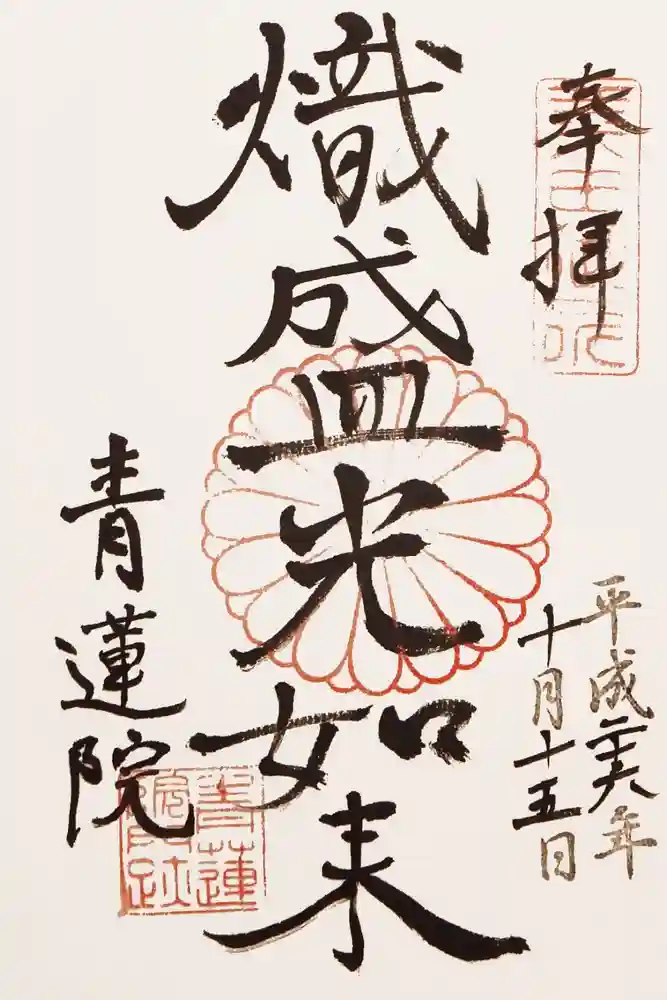 奉拝
平成 年
十月十五日
熾盛光如来
青蓮院
青蓮
院門跡